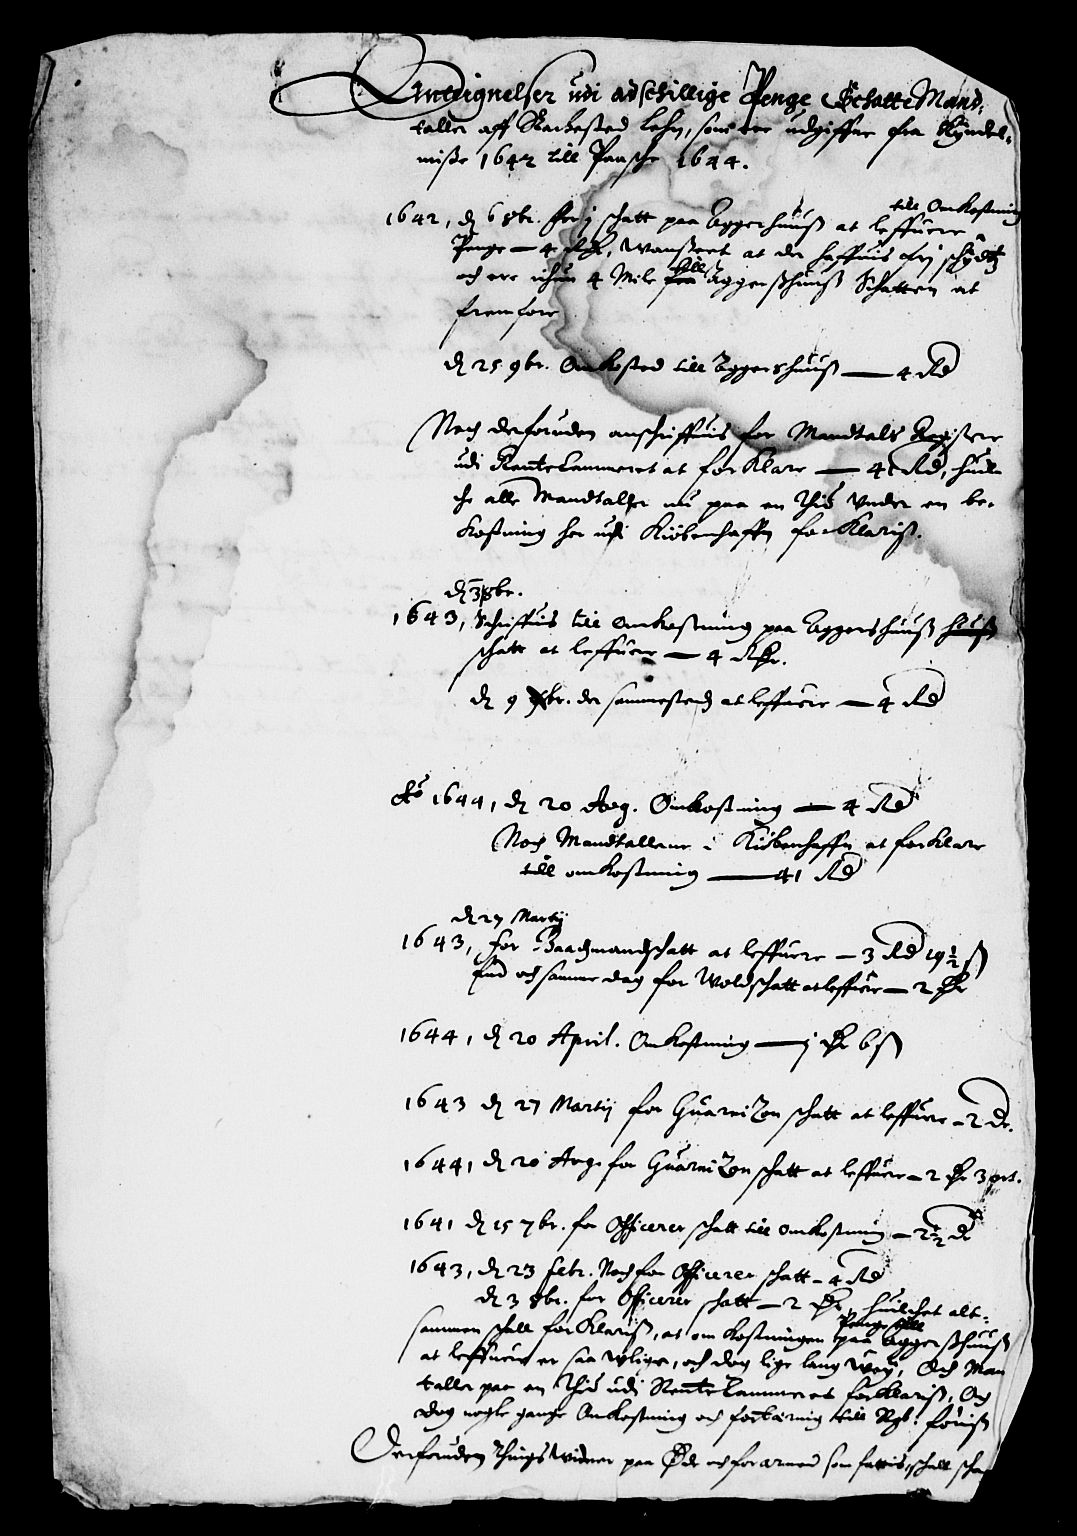 Antegnelser udi adschillige Penge Schatte Mand:
taller aff Lehn, som ere udgiffne fra Kyndel-
misse 1642 till Paasche 1644.
till Omkostning
1642, d 6 8br. For j schatt paa Aggershuuss at leffuere
Penge — 4 Rdr, at der haffuis frj schydtz
och ere ichun 4 Mile till Aggersshuuss Schatten at
fremføre
d 25 9br. Omkosted till Aggershuuss — 4 Rd
Noch derforuden anschriffuis for Mandtals Register
udi Rentekammeret at forklare — 4 Rd, huil-
che alle Mandtaller nu paa en thid under en be-
kostning her udi Kiøbenhaffn forklaris.
d 3 8br.
1643, Schriffuis till omkostning paa Aggershuuss
schatt at leffuere — 4 Rdr.
d 9 br. der sammesteds at leffuere — 4 Rd
Ao 1644, d 20 Aug. Omkostning — 4 Rd
Noch Mandtallene i Kiøbenhaffn at forklare
till omkostning — 41 Rd
d 27 Martij
1643, for Baadzmandschatt at leffuere — 3 Rd 19 1/2 ß
End och samme dag for Woldschatt at leffuere — 2 Dr
1644, d 20 April. Omkostning — j Dr 6 ß
1643 d 27 Martij for Guarnizon schatt at leffuere — 2 Dr.
1644, d 20 Aug. for Guarnizon schatt at leffuere — 2 Dr 3 ort.
1641 d 15 7br. for Officerer schatt till omkostning — 2 1/2 Dr
1643, d 23 Febr. Noch for Officerer schatt — 4 Rd
d 3 8br. for Officerer schatt — 2 Dr, huilchet alt-
Penge till
sammen schall forklaris, at omkostningen paa Aggersshuuss
at leffuere er saa ulige, och dog lige lang wey, Och Man
taller paa en thid udi Rentekammeret forklaris, Och
dog nogle gange Omkostning och fortæring till Rgb. føris
Derforuden Thingswidner paa Øde och forarmed som fattis, schall schaf